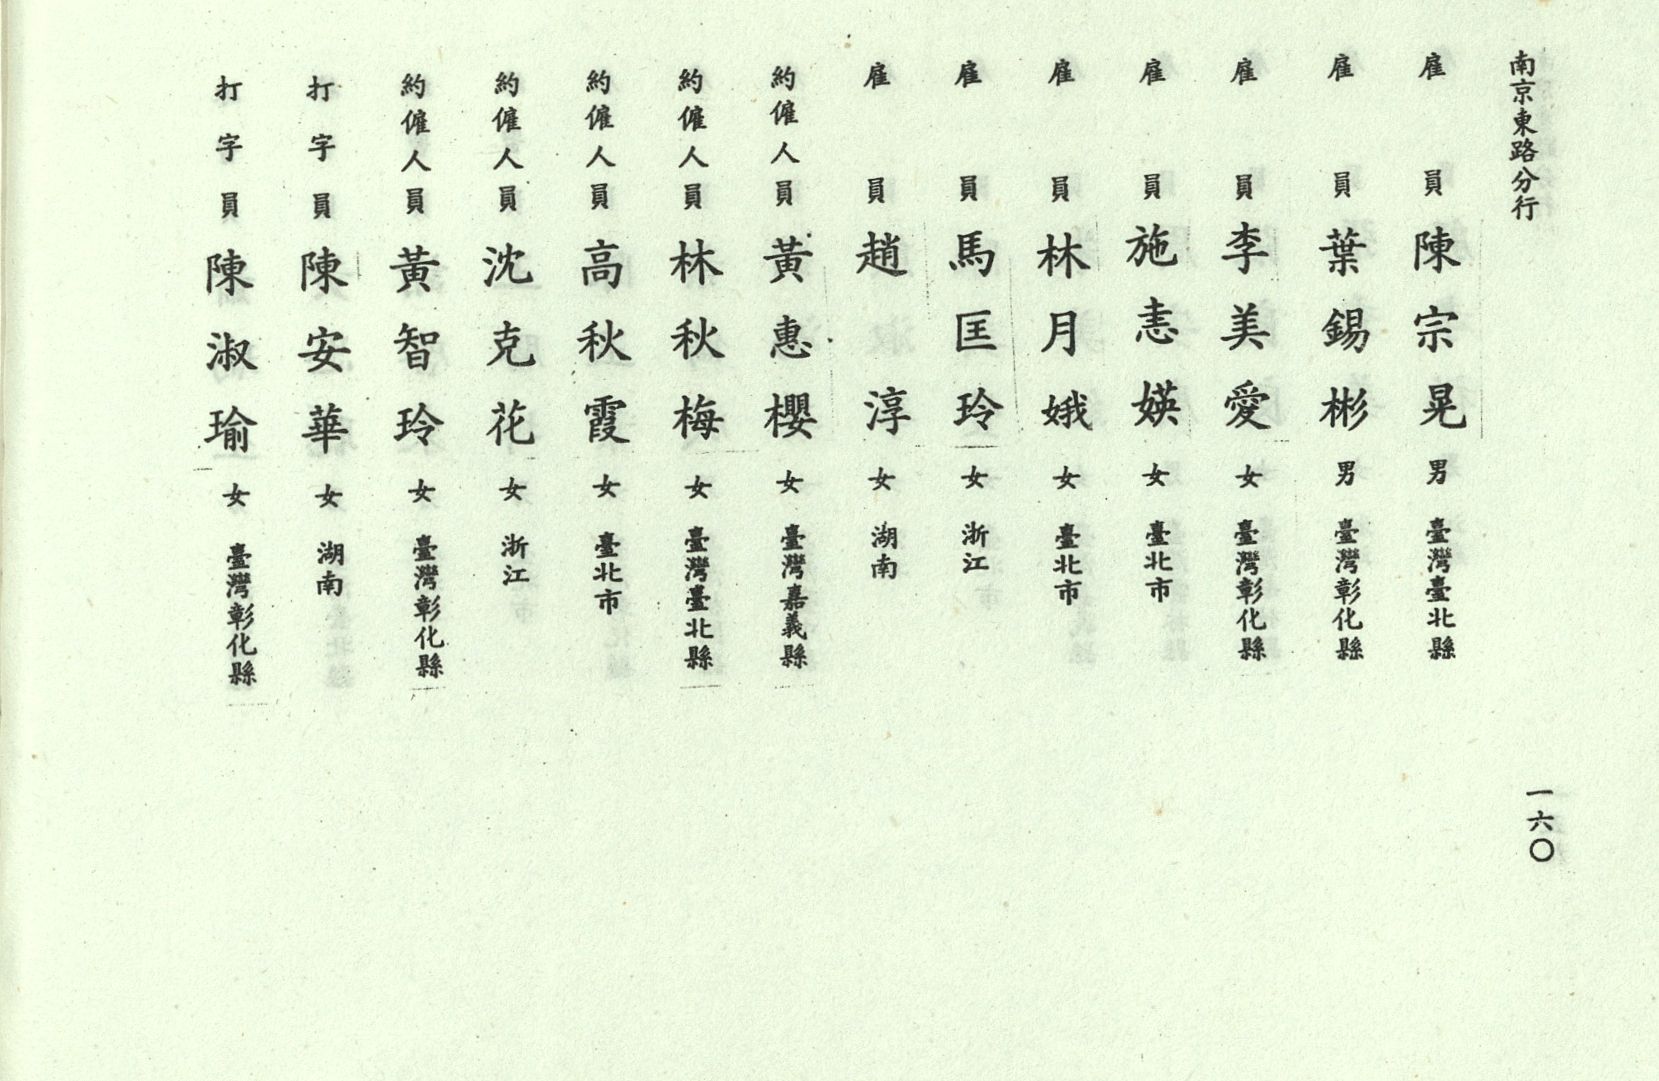 南京東路分行
雇員 陳宗晃 男 臺灣臺北縣
雇員 葉錫彬 男 臺灣彰化縣
雇員 李美愛 女 臺灣彰化縣
雇員 施恚媖 女 臺北市
雇員 林月娥 女 臺北市
雇員 馬匡玲 女 浙江
雇員 趙淳 女 湖南
約僱人員 黃惠櫻 女 臺灣嘉義縣
約僱人員 林秋梅 女 臺灣臺北縣
約僱人員 高秋霞 女 臺北市
約僱人員 沈克花 女 浙江
約僱人員 黃智玲 女 臺灣彰化縣
打字員 陳安華 女 湖南
打字員 陳淑瑜 女 臺灣彰化縣
一六〇